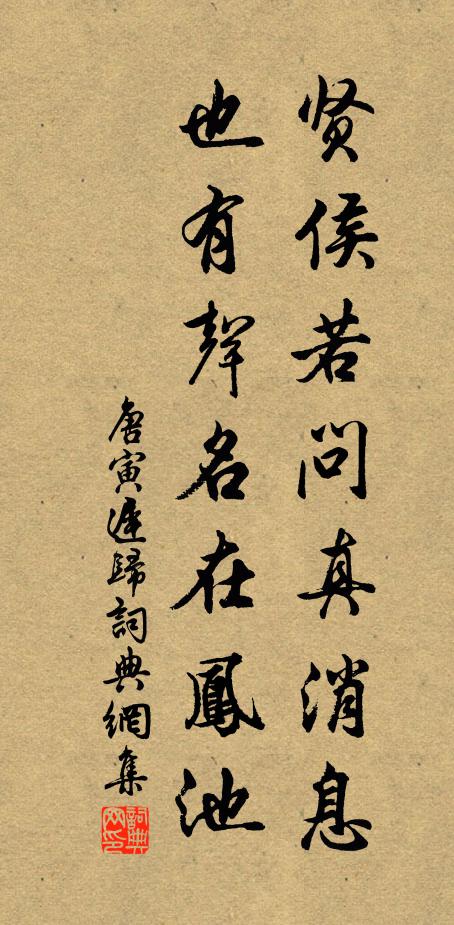 贤侯若问真消息
也有聲名在鳳池
唐寅遲歸詞典網集
詞典网印